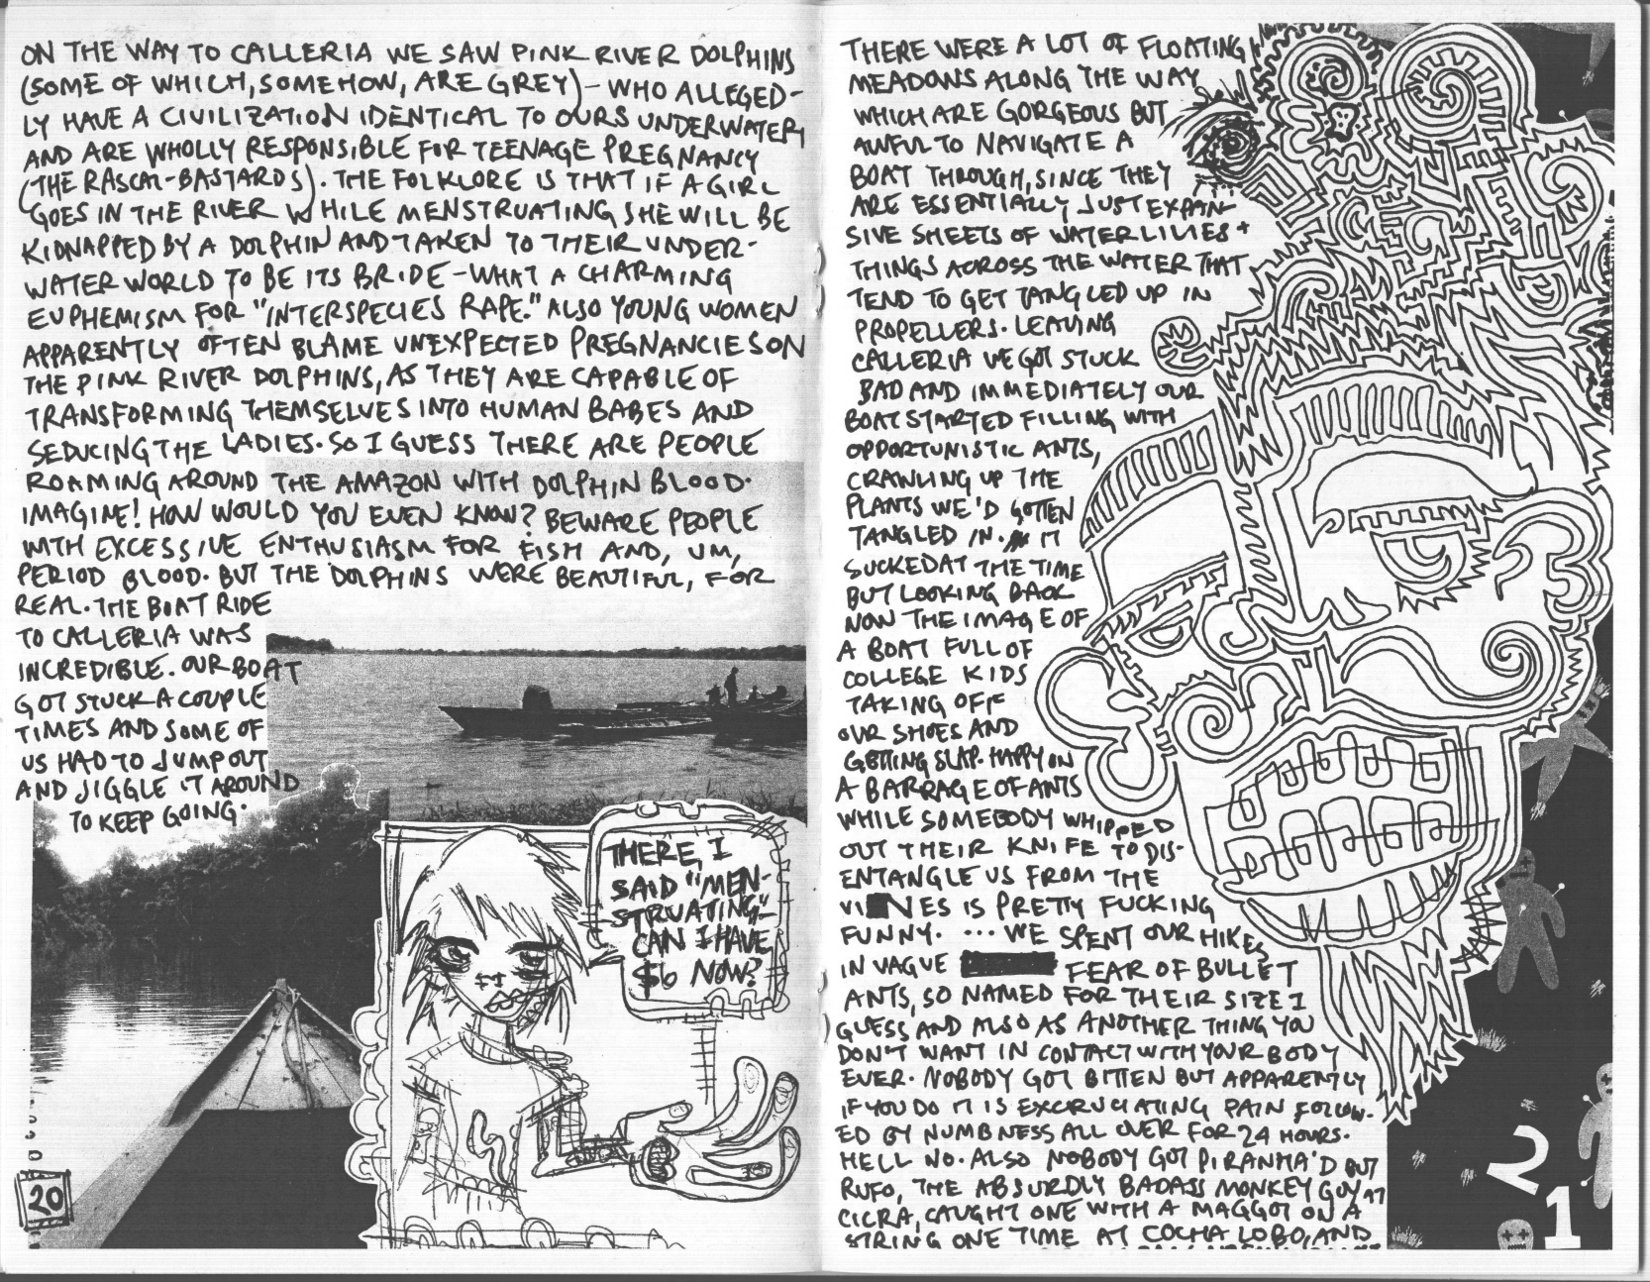 ON THE WAY TO CALLERIA WE SAW PINK RIVER DOLPHINS
(SOME OF WHICH, SOMEHOW, ARE GREY) – WHO ALLEGED-
LY HAVE A CIVILIZATION IDENTICAL TO OURS UNDERWATER,
AND ARE WHOLLY RESPONSIBLE FOR TEENAGE PREGNANCY
(THE RASCAL-BASTARDS). THE FOLKLORE IS THAT IF A GIRL
GOES IN THE RIVER WHILE MENSTRUATING SHE WILL BE
KIDNAPPED BY A DOLPHIN AND TAKEN TO THEIR UNDER-
WATER WORLD TO BE ITS BRIDE – WHAT A CHARMING
EUPHEMISM FOR "INTERSPECIES RAPE." ALSO YOUNG WOMEN
APPARENTLY OFTEN BLAME UNEXPECTED PREGNANCIES ON
THE PINK RIVER DOLPHINS, AS THEY ARE CAPABLE OF
TRANSFORMING THEMSELVES INTO HUMAN BABES AND
SEDUCING THE LADIES. SO I GUESS THERE ARE PEOPLE
ROAMING AROUND THE AMAZON WITH DOLPHIN BLOOD.
IMAGINE! HOW WOULD YOU EVEN KNOW? BEWARE PEOPLE
WITH EXCESSIVE ENTHUSIASM FOR FISH AND, UM,
PERIOD BLOOD. BUT THE DOLPHINS WERE BEAUTIFUL, FOR
REAL. THE BOAT RIDE
TO CALLERIA WAS
INCREDIBLE. OUR BOAT
GOT STUCK A COUPLE
TIMES AND SOME OF
US HAD TO JUMP OUT
AND JIGGLE IT AROUND
TO KEEP GOING.
THERE, I
SAID "MEN-
STRUATING"–
CAN I HAVE
$6 NOW?
20
THERE WERE A LOT OF FLOATING
MEADOWS ALONG THE WAY
WHICH ARE GORGEOUS BUT
AWFUL TO NAVIGATE A
BOAT THROUGH, SINCE THEY
ARE ESSENTIALLY JUST EXPAN-
SIVE SHEETS OF WATERLILIES +
THINGS ACROSS THE WATER THAT
TEND TO GET TANGLED UP IN
PROPELLERS. LEAVING
CALLERIA WE GOT STUCK
BAD AND IMMEDIATELY OUR
BOAT STARTED FILLING WITH
OPPORTUNISTIC ANTS,
CRAWLING UP THE
PLANTS WE'D GOTTEN
TANGLED IN. IT
SUCKED AT THE TIME
BUT LOOKING BACK
NOW THE IMAGE OF
A BOAT FULL OF
COLLEGE KIDS
TAKING OFF
OUR SHOES AND
GETTING SLAP-HAPPY ON
A BARRAGE OF ANTS
WHILE SOMEBODY WHIPPED
OUT THEIR KNIFE TO DIS-
ENTANGLE US FROM THE
VINES IS PRETTY FUCKING
FUNNY. ... WE SPENT OUR HIKES
IN VAGUE FEAR OF BULLET
ANTS, SO NAMED FOR THEIR SIZE I
GUESS AND ALSO AS ANOTHER THING YOU
DON'T WANT IN CONTACT WITH YOUR BODY
EVER. NOBODY GOT BITTEN BUT APPARENTLY
IF YOU DO IT IS EXCRUCIATING PAIN FOLLOW-
ED BY NUMBNESS ALL OVER FOR 24 HOURS.
HELL NO. ALSO NOBODY GOT PIRANHA'D BUT
RUFO, THE ABSURDLY BADASS MONKEY GUY AT
CICRA, CAUGHT ONE WITH A MAGGOT ON A
STRING ONE TIME AT COCHA LOBO, AND
21